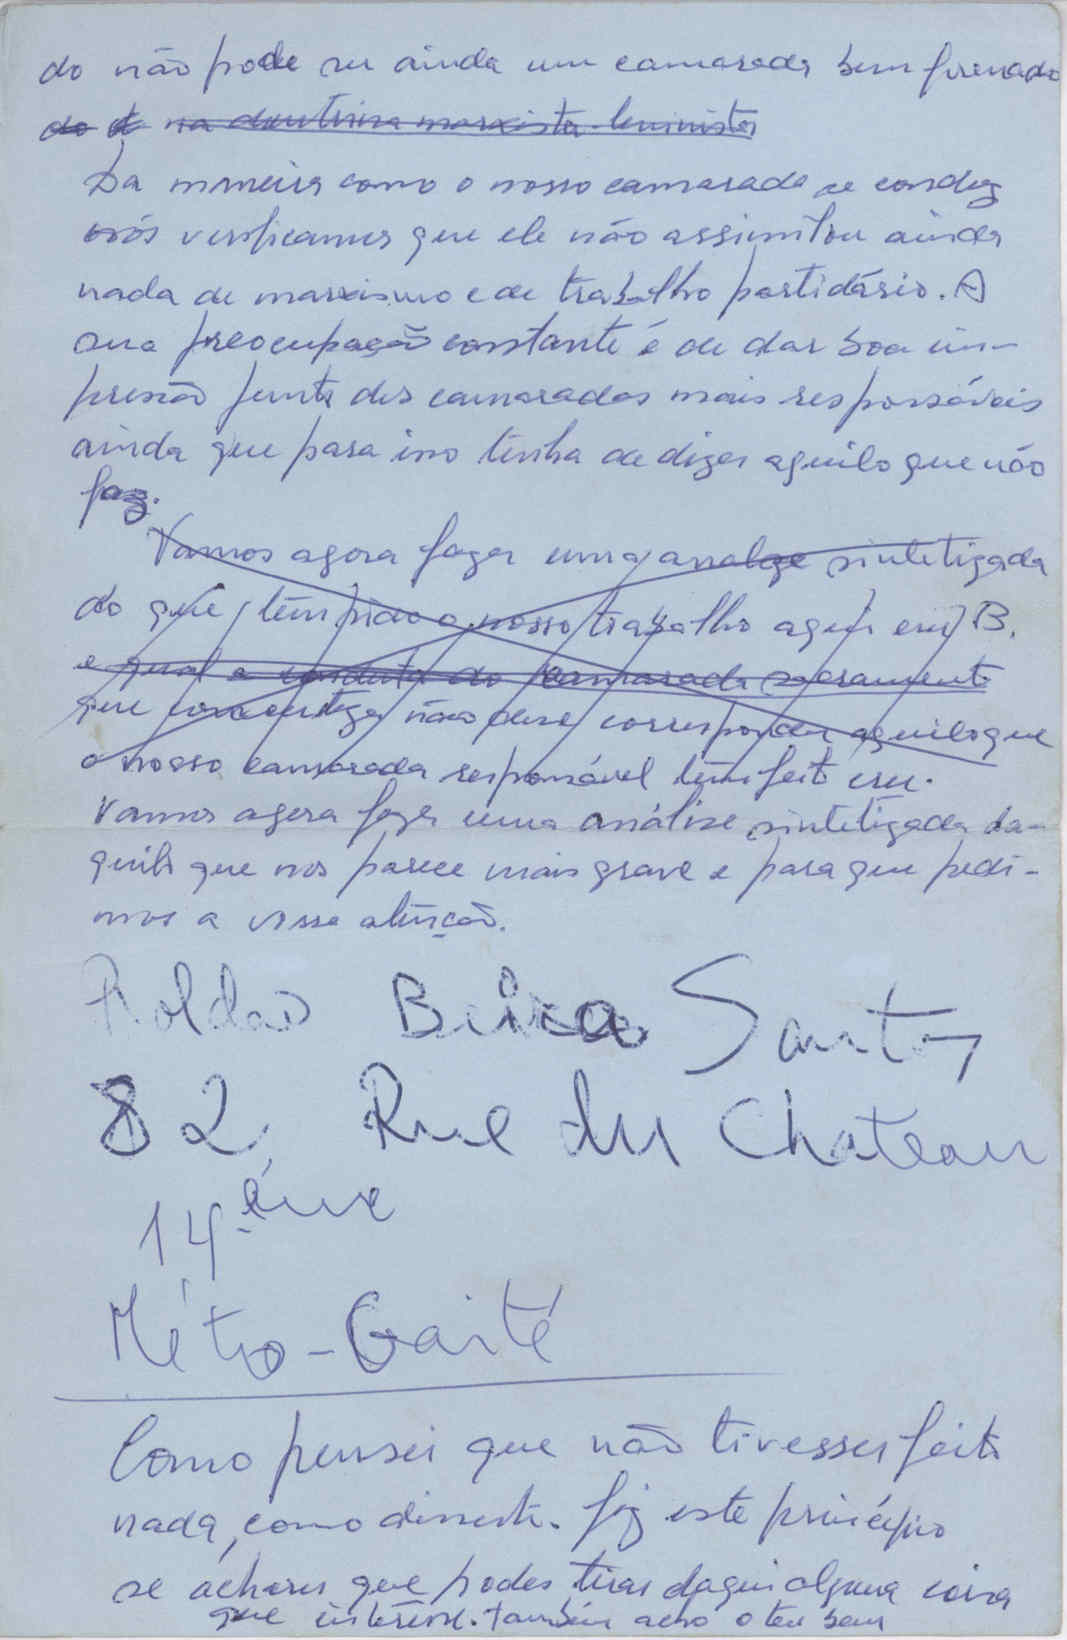 do não pode ser ainda um camarada bem formado
do d na doutrina marxista-leninista
Da maneira como o nosso camarada se conduz
nós verificamos que ele não assimilou ainda
nada de marxismo e de trabalho partidário. A
sua preocupação constante é de dar boa im-
pressão junto dos camaradas mais responsáveis
ainda que para isso tenha de dizer aquilo que não
faz.
Vamos agora fazer uma analyse sintetizada
do que tem sido o nosso trabalho aqui em B.
e qual a conduta do camarada sacramento
que com certeza não deve corresponder aquilo que
o nosso camarada responsável tem feito crer.
Vamos agora fazer uma análise sintetizada da-
quilo que nos parece mais grave e para que pedi-
mos a vossa atenção.
Roldão Santos
82, Rue du Chateau
14.ème
Métro-Gaité
Como pensei que não tivesses feito
nada, como disseste. fiz este princípio
se achares que podes tirar daqui alguma coisa
que interesse. também acho o teu bem